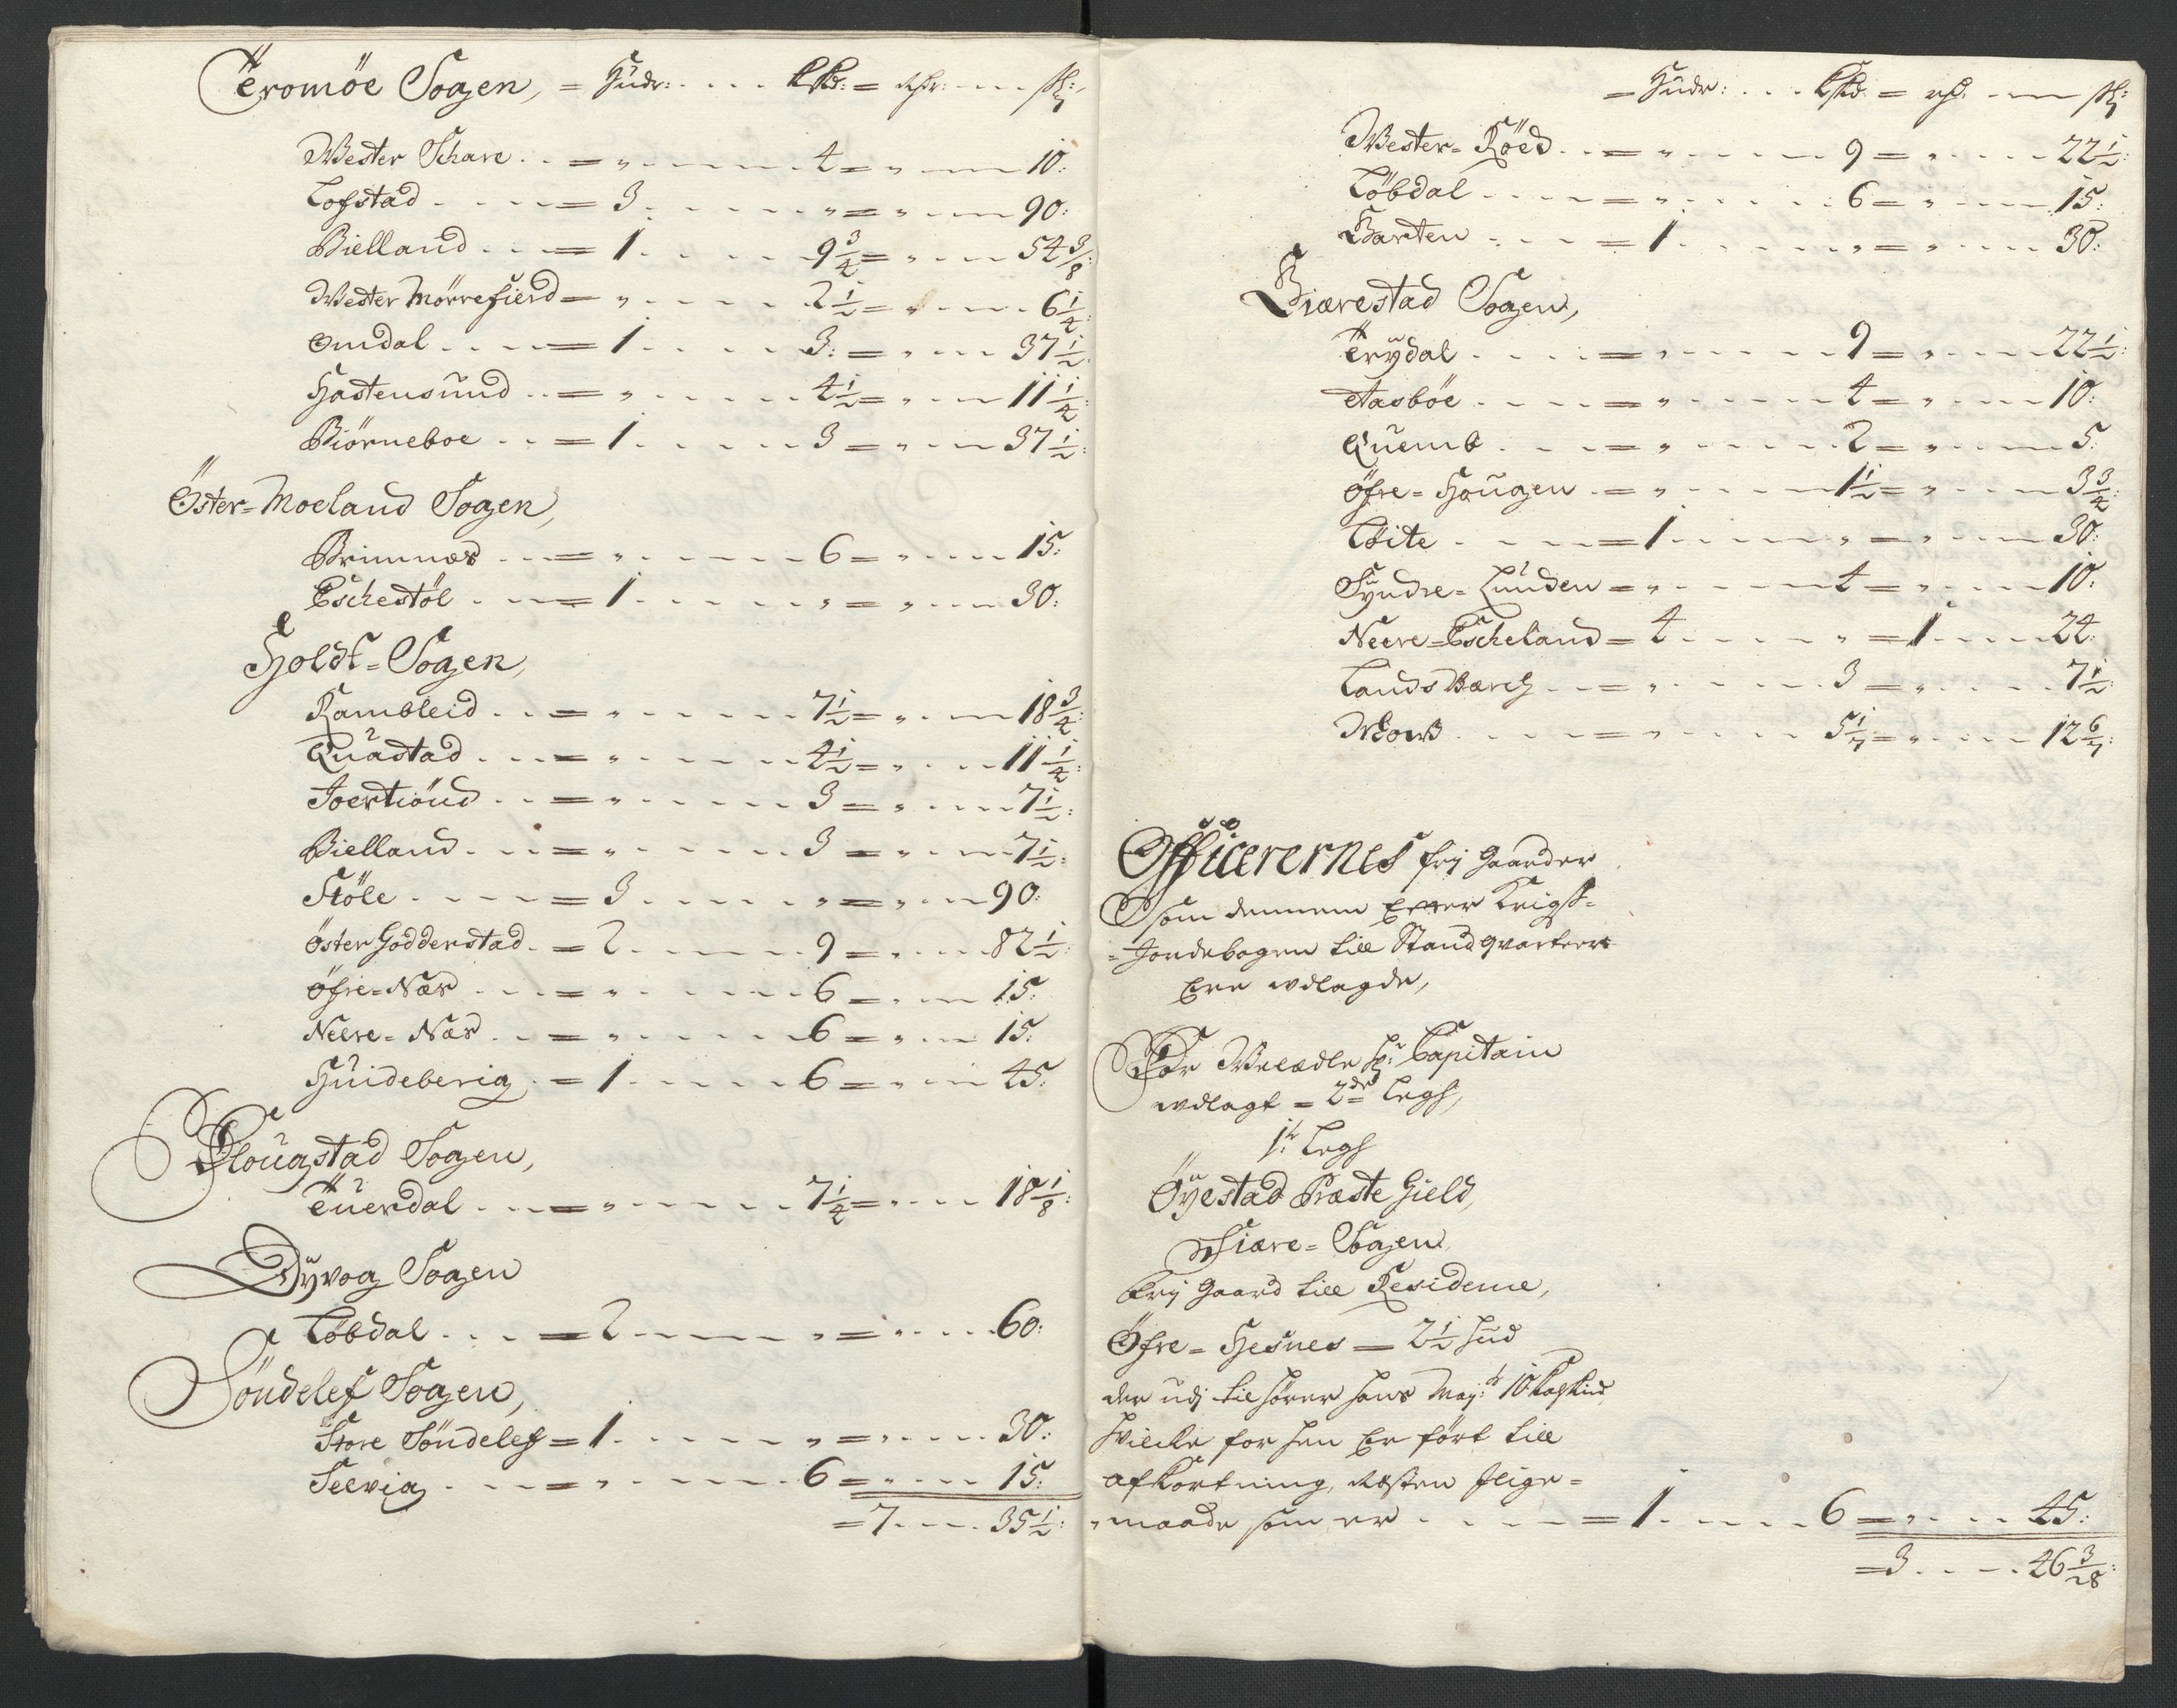 Tromöe Sogen, = Hudr: . . . . kſkd: = rdr: - - - ſk:
Wester Schare . . = „ . . . . 4 = „ - - 10:
Lofstad . . . . = 3 . . . . „ = „ - - 90:
Bielland . . . = 1 . . . . 9 3/4 = „ - - 54 3/8:
Wester Mörrefierd = „ . . . . 2 1/2 = „ - - 6 1/4:
Omdal . . . . = 1 . . . . 3: = „ - - 37 1/2:
Hastensund . . = „ . . . . 4 1/2 = „ - - 11 1/4:
Biörneboe . . = 1 . . . . 3 = „ - - 37 1/2:
Öster-Moeland Sogen,
Brimnes . . . = „ . . . . 6 = „ . . . 15:
Eschestöl . . . = 1 . . . . „ = „ . . . 30:
Holdt-Sogen,
Rambleid . . . = „ . . . . 7 1/2 = „ . . . 18 3/4:
Quastad . . . = „ . . . . 4 1/2 = „ . . . 11 1/4:
Joertiönd . . = „ . . . . 3 = „ . . . 7 1/2:
Bielland . . . = „ . . . . 3 = „ . . . 7 1/2:
Stöle . . . . = 3 . . . . „ = „ . . . 90:
Öster Godderstad . = 2 . . . . 9 = „ . . . 82 1/2:
Öfre-Næs . . . = „ . . . . 6 = „ . . . 15:
Neere-Næs . . = „ . . . . 6 = „ . . . 15:
Huideberig . = 1 . . . . 6 = „ . . . 45:
Flougstad Sogen,
Tuerdal . . . = „ . . . . 7 1/4 = „ . . . 18 1/8:
Dyvog Sogen
Löbdal . . . = 2 . . . . „ = „ . . . 60:
Söndelef Sogen,
Store Söndelef = 1 . . . . „ = „ . . . 30:
Selvig . . . = „ . . . . 6 = „ . . . 15:
= 7 . . . . 35 1/2:
= Hudr: . . . kſkd = rd. - - - ſk:
Wester-Röed . . = „ . . . . 9 = „ . . . 22 1/2:
Löbdal . . . . = „ . . . . 6 = „ . . . 15:
Barten . . . . = 1 . . . . „ = „ . . . 30:
Giærestad Sogen,
Trydal . . . . = „ . . . . 9 = „ . . . 22 1/2:
Aasböe . . . . = „ . . . . 4 = „ . . . 10:
Quemb . . . . = „ . . . . 2 = „ . . . 5:
Öfre-Hougen . = „ . . . . 1 1/2 = „ . . . 3 3/4:
Löite . . . . = 1 . . . . „ = „ . . . 30:
Syndre-Lunden = „ . . . . 4 = „ . . . 10:
Neere-Escheland = 4 . . . . „ = 1 . . . 24:
Landsværg . . = „ . . . . 3 = „ . . . 7 1/2:
. . . . = „ . . . . 5 1/7 = „ . . . 12 6/7:
Officerernes frj Gaarder
som dennem Efter Krigs-
-Jordebogen till Standqvarteer
Ere udlagde,
For Velædle Hr: Capitain
udlagt = 2de Legh,
1t: Legh
Öyestad Præste Gield,
Fiære-Sogen
Frj Gaard till Residence,
Öfre-Hesnes — 2 1/2 hud
der udj tilhörer hans Maj:ts 10 Kalfskind
hvilcke for hen Er fört till
afkortning, Resten Jlige-
maade som er . . . = 1 . . . . 6 = „ . . . 45:
= 3 . . . . 46 3/28: